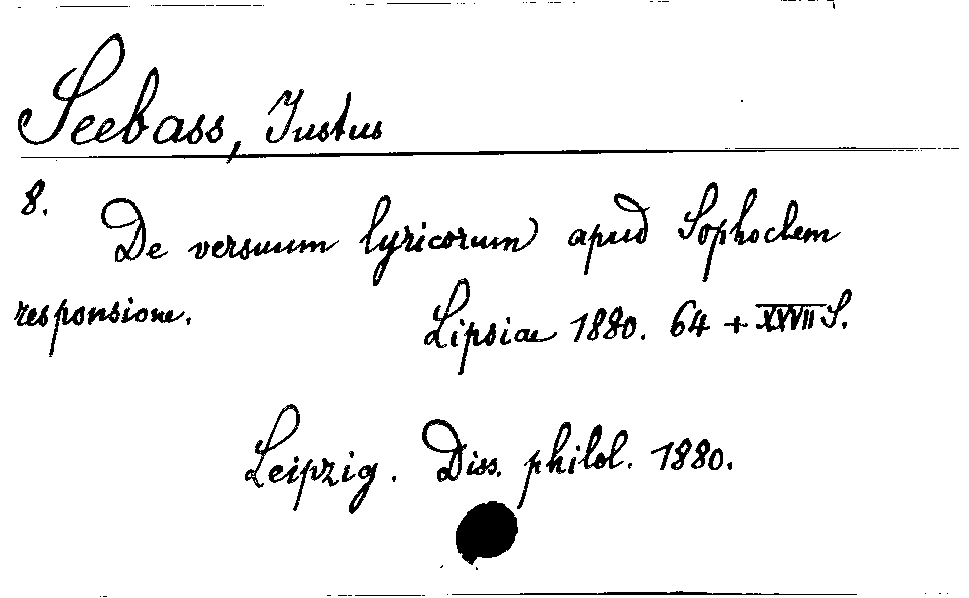 Seebass, Justus
8.
De versuum lyricorum apud Sophoclem
responsione.
Lipsiae 1880. 64 + XXVII S.
Leipzig. Diss. philol. 1880.